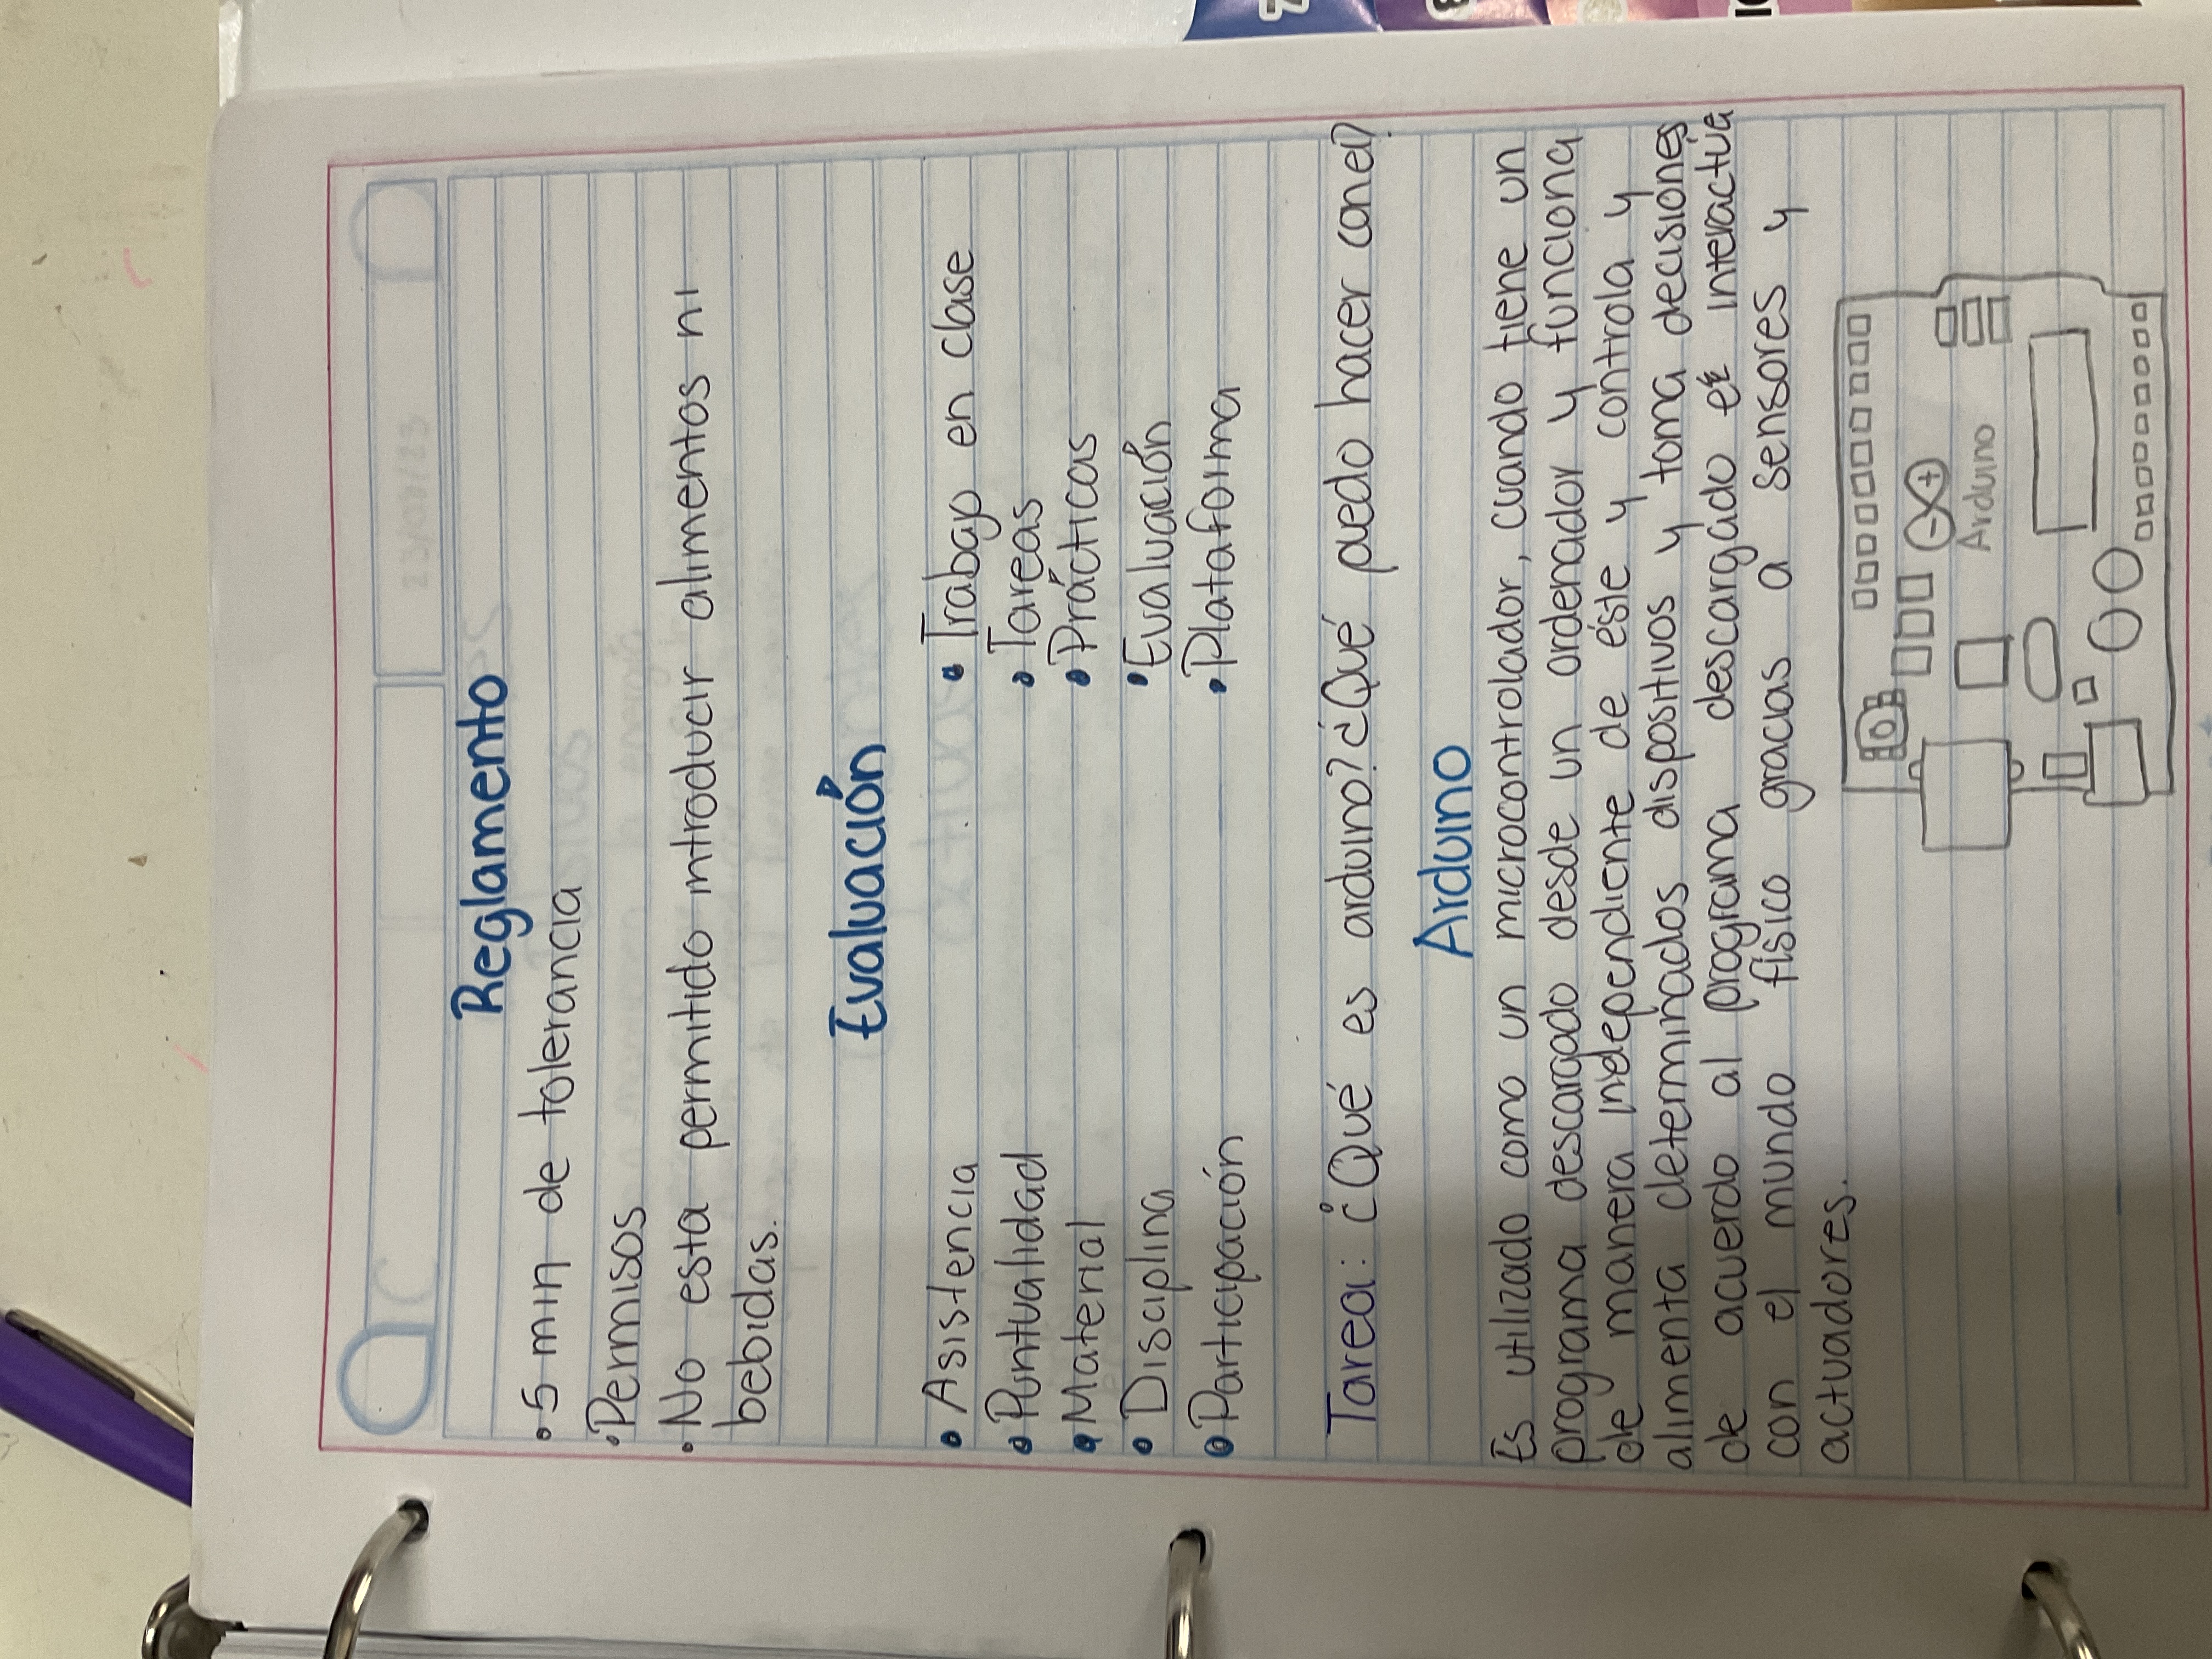 Reglamento
• 5 min de tolerancia
• Permisos
• No esta permitido introducir alimentos ni
bebidas.
Evaluación
• Asistencia • Trabajo en clase
• Puntualidad • Tareas
• Material • Prácticas
• Disciplina • Evaluación
• Participación • Plataforma
Tarea: ¿Qué es arduino? ¿Qué puedo hacer con el?
Arduino
Es utilizado como un microcontrolador, cuando tiene un
programa descargado desde un ordenador y funciona
de manera independiente de éste y controla y
alimenta determinados dispositivos y toma decisiones
de acuerdo al programa descargado e interactua
con el mundo físico gracias a sensores y
actuadores.
Arduino